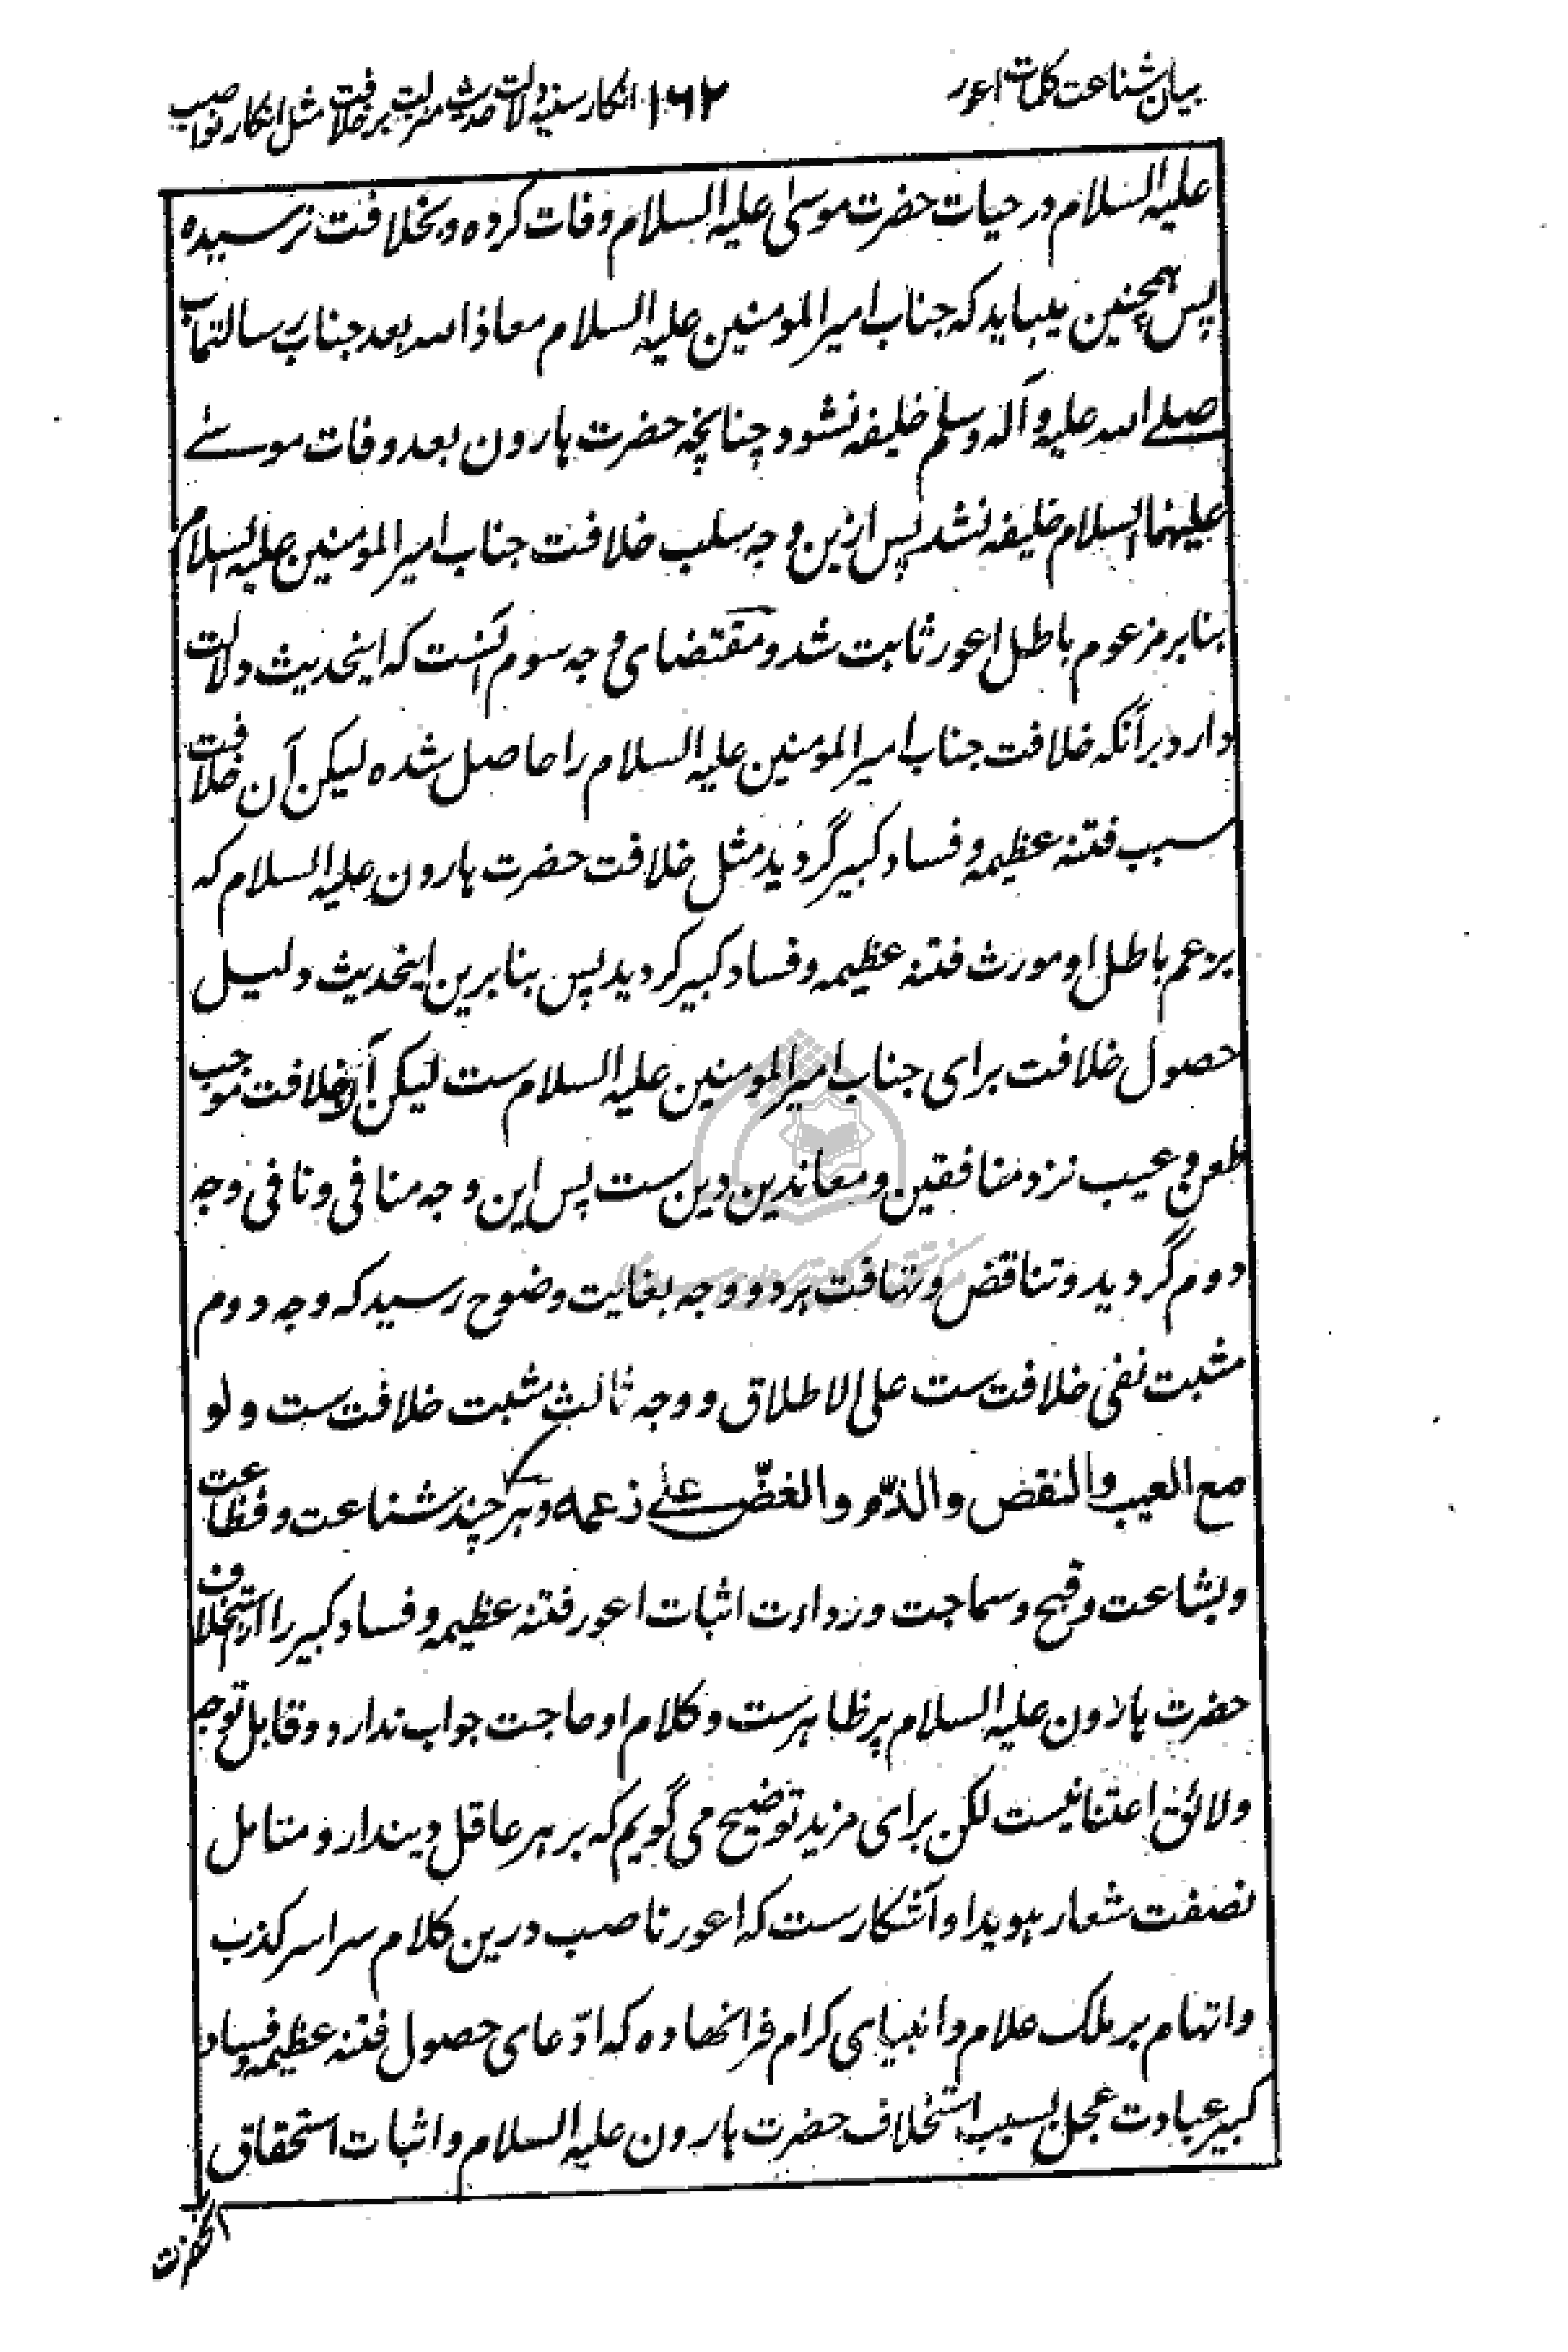 بیان شناعت کلمات اعور
۱۶۲
انکار سنیه دلالت حدیث منزلت بر خلافت مثل انکار نواصب
علیه السلام در حیات حضرت موسی علیه السلام وفات کرده و بخلافت نرسیده
پس همچنین میباید که جناب امیر المومنین علیه السلام معاذ الله بعد جناب رسالتماب
صلے الله علیه وآله وسلم خلیفه نشود چنانچه حضرت هارون بعد وفات موسے
علیهما السلام خلیفه نشد پس ازین وجه سلب خلافت جناب امیر المومنین علیه السلام
بنابر مزعوم باطل اعور ثابت شد و مقتضای وجه سوم آنست که اینحدیث دلالت
دارد برآنکه خلافت جناب امیر المومنین علیه السلام را حاصل شده لیکن آن خلافت
سبب فتنه عظیمه و فساد کبیر گردید مثل خلافت حضرت هارون علیه السلام که
بزعم باطل او مورث فتنه عظیمه و فساد کبیر گردید پس بنابرین اینحدیث دلیل
حصول خلافت برای جناب امیر المومنین علیه السلام ست لیکن آن خلافت موجب
طعن و عیب نزد منافقین و معاندین دین ست پس این وجه منافی و نافی وجه
دوم گردید و تناقض و تهافت هر دو وجه بغایت وضوح رسید که وجه دوم
مثبت نفی خلافت ست علی الاطلاق و وجه ثالث مثبت خلافت ست ولو
مع العیب والنقض والذم والغضّ علے زعمه و هر چند شناعت و فظاعت
و بشاعت و قبح و سماجت و رداءت اثبات اعور فتنه عظیمه و فساد کبیر را از استخلاف
حضرت هارون علیه السلام پر ظاهرست و کلام او حاجت جواب ندارد و قابل توجه
و لائق اعتنا نیست لکن برای مزید توضیح می گویم که بر هر عاقل دیندار و متامل
نصفت شعار هویدا و آشکارست که اعور ناصب درین کلام سراسر کذب
و اتهام بر ملک علام و انبیای کرام فرا نهاده که ادّعای حصول فتنه عظیمه و فساد
کبیر عبادت عجل بسبب استخلاف حضرت هارون علیه السلام و اثبات استحقاق